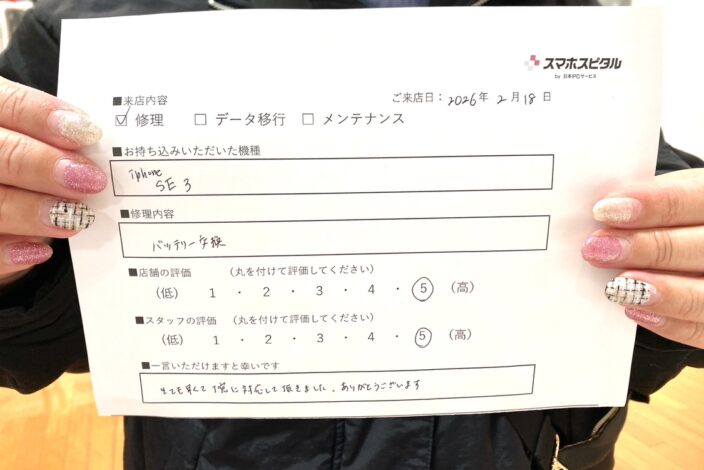 スマホスピタル
by 日本PCサービス
■来店内容
ご来店日：2026年 2月18日
☑ 修理 □ データ移行 □ メンテナンス
■お持ち込みいただいた機種
iphone
SE 3
■修理内容
バッテリー交換
■店舗の評価 （丸を付けて評価してください）
（低） 1 ・ 2 ・ 3 ・ 4 ・ 5 （高）
■スタッフの評価 （丸を付けて評価してください）
（低） 1 ・ 2 ・ 3 ・ 4 ・ 5 （高）
■一言いただけますと幸いです
とても早くて 丁寧に対応して頂きました。ありがとうございます